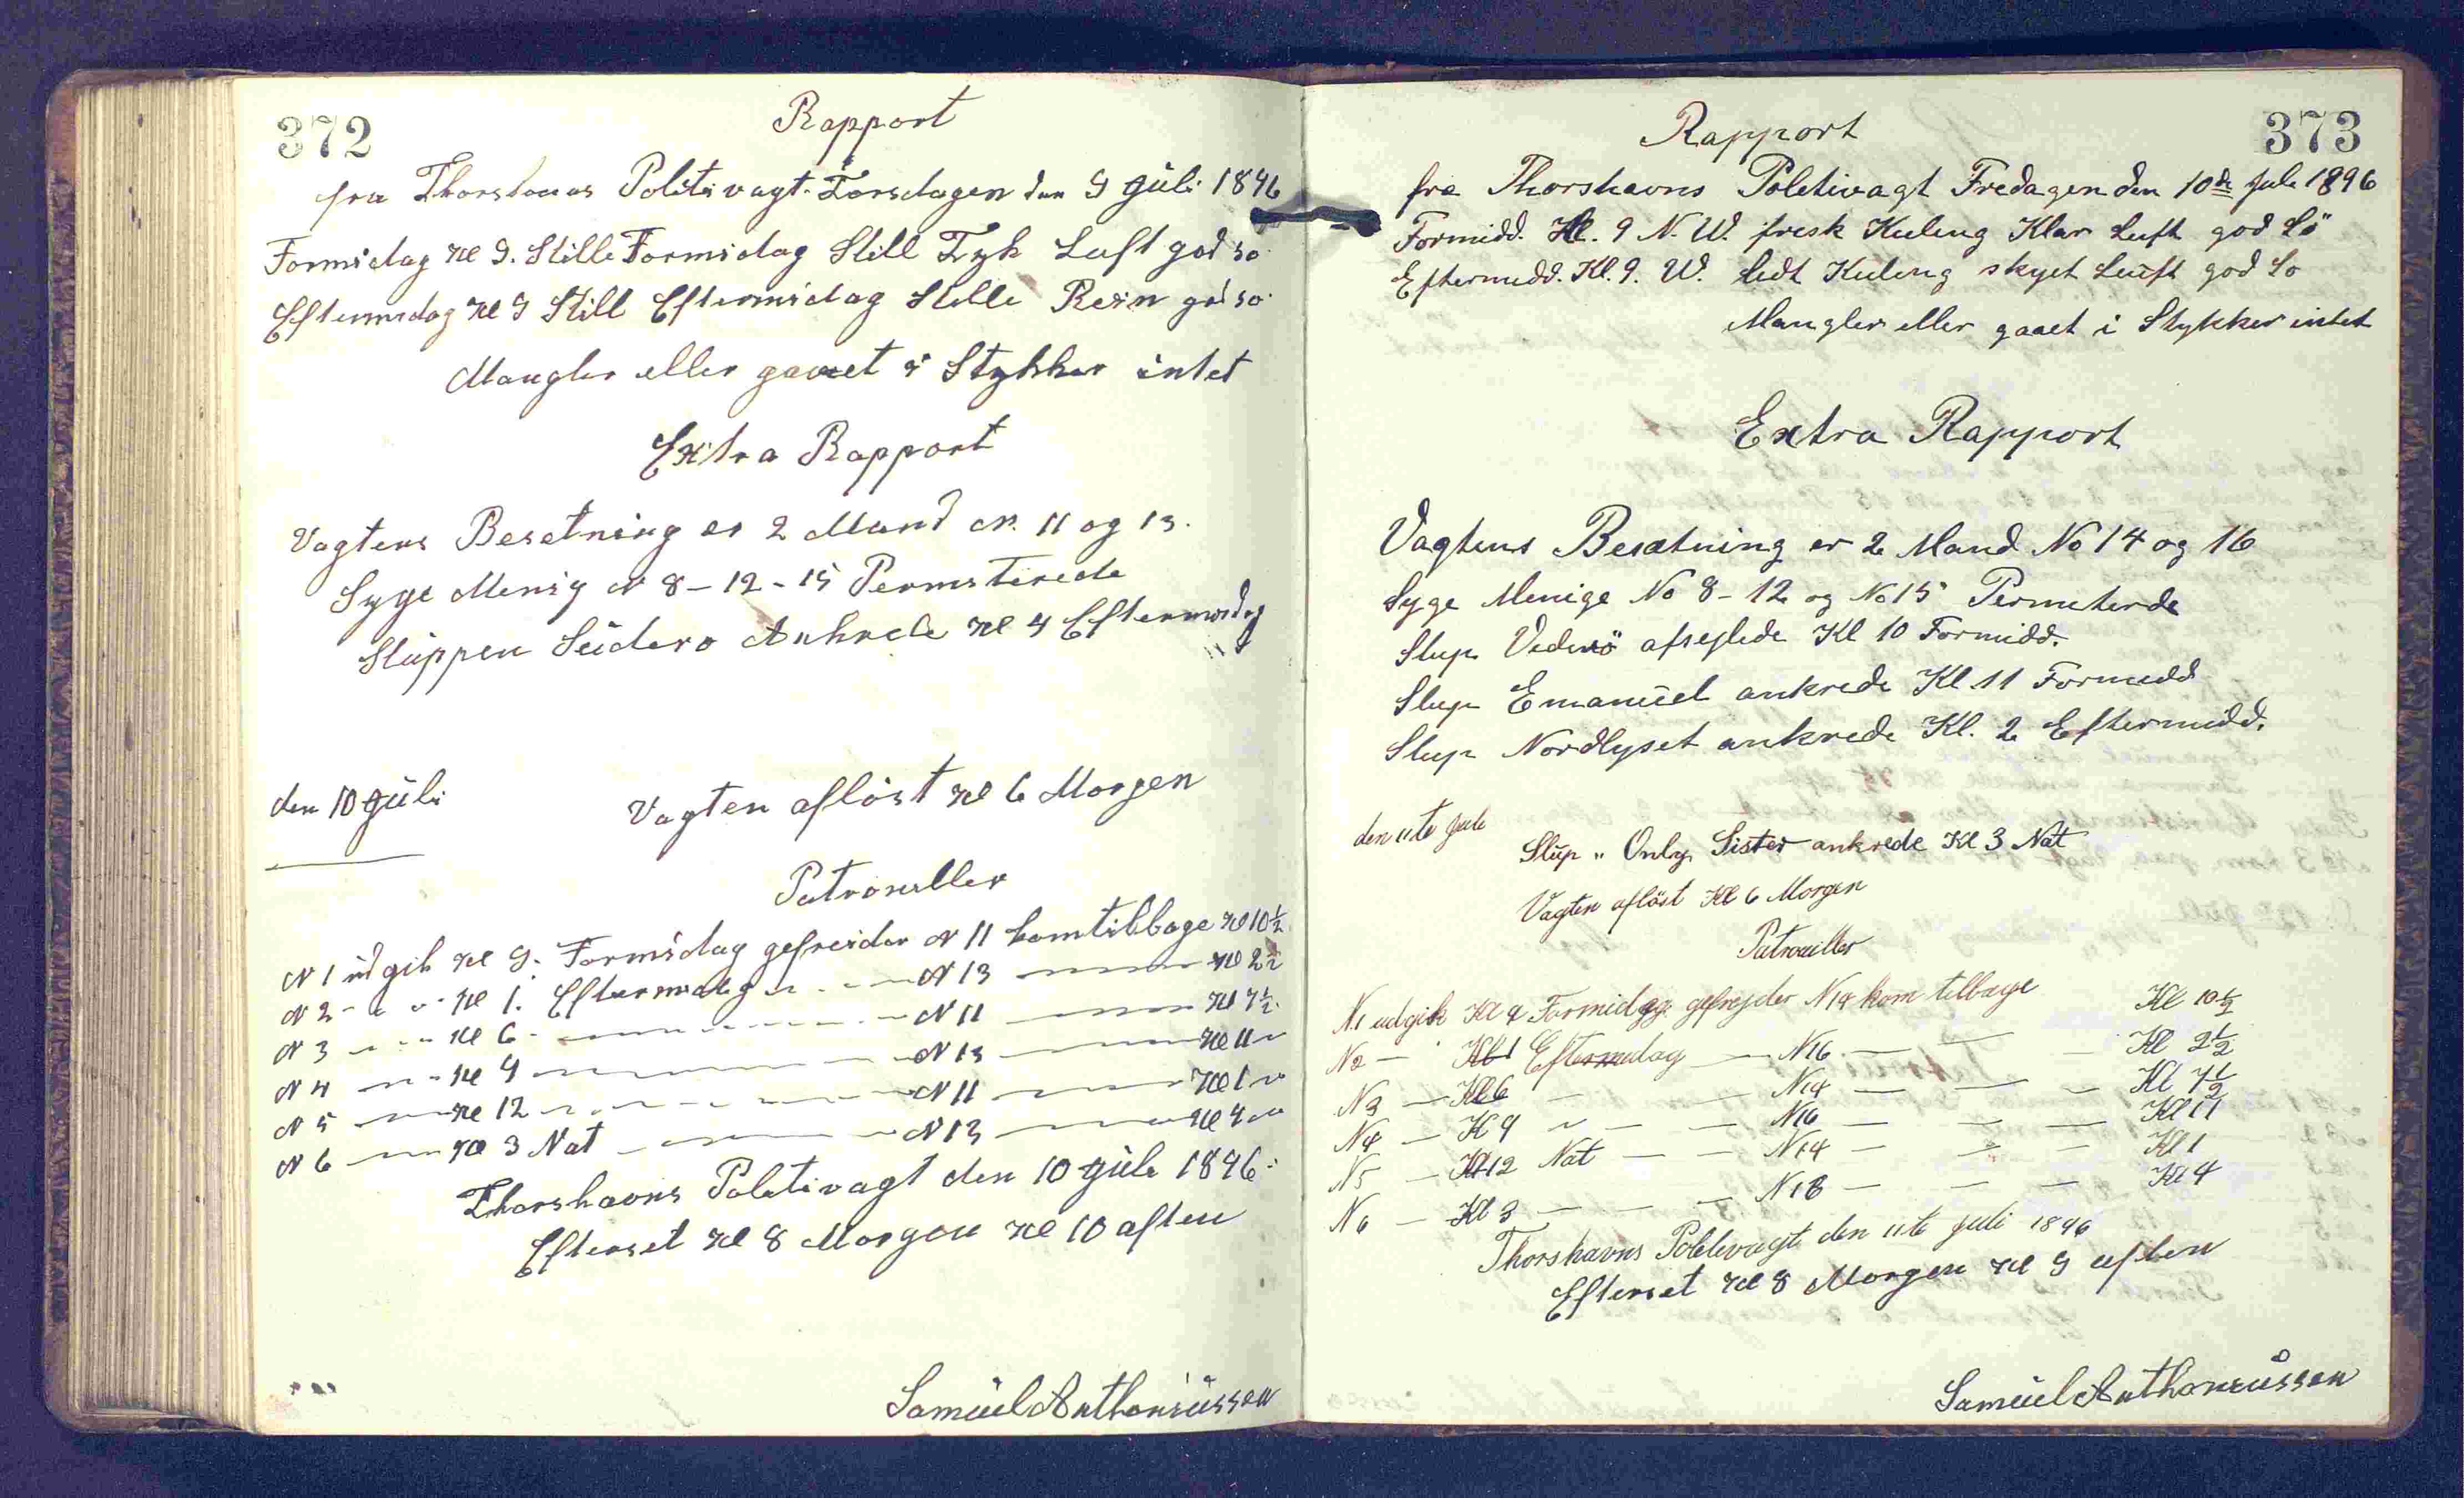 372
Rapport
fra Thorshavns Politivagt Torsdagen den 9 Juli 1896
Formidag Kl 9. Stille Formidag Still Tyk Luft god so
Eftermidag Kl 9 Still Eftermidag Stille Rein god so
Mangler eller gaaet i Stykker intet
Extra Rapport
Vagtens Besetning er 2 Mand N. 11 og 13.
Syge Menig N 8 - 12 - 15 Permiterede
Sluppen Sudero Ankrede Kl 4 Eftermidag
den 10 Juli
Vagten aflöst Kl 6 Morgen
Patrouller
N 1 udgik Kl 9. Formidag gefreider N 11 kom tilbage Kl 10½
N 2 - " - Kl 1. Eftermidag - - - N 13 - Kl 2½
N 3 - - - Kl 6 - - - N 11 - Kl 7½
N 4 - - - Kl 9 - - - N 13 - Kl 11 -
N 5 - - Kl 12 - - - N 11 - Kl 1 -
N 6 - - Kl 3 Nat - - - N 13 - Kl 4 -
Thorshavns Politivagt den 10 Juli 1896
Efterset Kl 8 Morgen Kl 10 aften
Samuel Anthoniussen
373
Rapport
fra Thorshavns Politivagt Fredagen den 10de Juli 1896
Formidd. Kl. 9 N. W. frisk Kuling Klar Luft god Sö
Eftermidd. Kl. 9. W. lidt Kuling skyet Luft god So
Mangler eller gaaet i Stykker intet
Extra Rapport
Vagtens Besætning er 2 Mand No 14 og 16
Syge Menige No 8 - 12 og No 15 Permiterde
Slup Viderö afsejlede Kl 10 Formidd.
Slup Emanuel ankrede Kl 11 Formidd
Slup Nordlyset ankrede Kl. 2 Eftermidd.
den 11te Juli
Slup " Only Sister ankrede Kl 3 Nat
Vagten aflöst Kl 6 Morgen
Patrouiller
N1 udgik Kl 9 Formidag gefrejder N14 kom tilbage Kl 10½
N2 - Kl 1 Eftermidag - N16 - - Kl 2½
N3 - Kl 6 - - N14 - - - Kl 7½
N4 - K 9 - - - N16 - - - Kl 11
N5 - Kl 12 Nat - - N14 - - - Kl 1
N6 - Kl 3 - - - N18 - - - Kl 4
Thorshavns Politivagt den 11te Juli 1896
Efterset Kl 8 Morgen Kl 9 aften
Samuel Anthoniussen